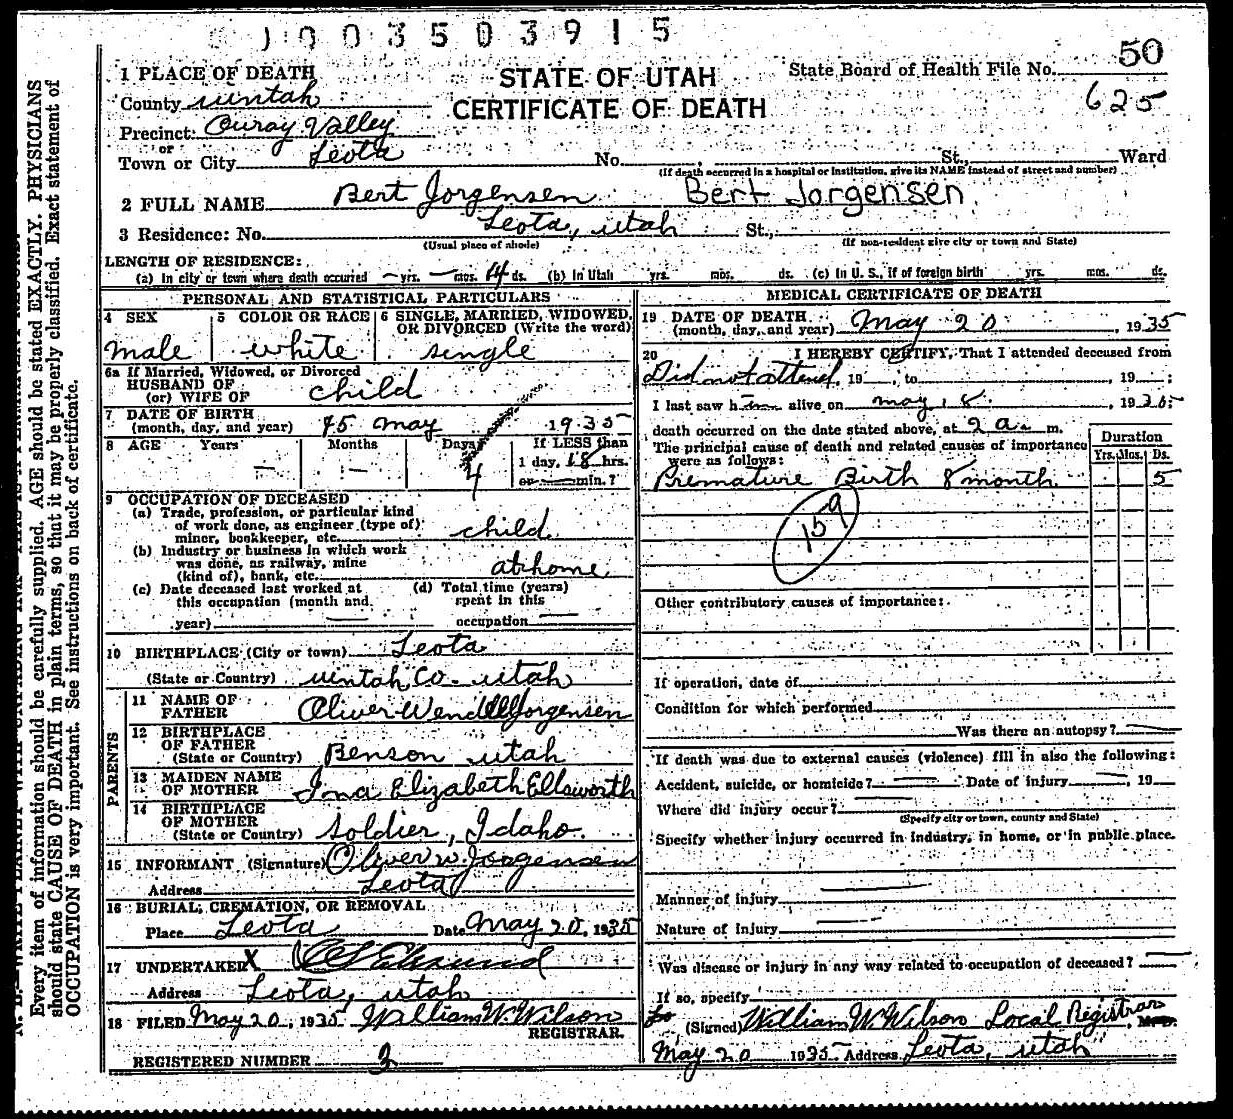 1003503915
50
1 PLACE OF DEATH
STATE OF UTAH
State Board of Health File No.
County uintah
CERTIFICATE OF DEATH
625
Precinct Ouray Valley
or
Town or City Leota No. , St., Ward
(If death occurred in a hospital or institution, give its NAME instead of street and number)
2 FULL NAME Bert Jorgensen Bert Jorgensen
3 Residence: No. Leota, utah St.,
(Usual place of abode) (If non-resident give city or town and State)
LENGTH OF RESIDENCE:
(a) In city or town where death occurred — yrs. — mos. 14 ds. (b) In Utah yrs. mos. ds. (c) In U. S., if of foreign birth yrs. mos. ds.
PERSONAL AND STATISTICAL PARTICULARS
4 SEX
male
5 COLOR OR RACE
white
6 SINGLE, MARRIED, WIDOWED,
OR DIVORCED (Write the word)
single
6a If Married, Widowed, or Divorced
HUSBAND OF
(or) WIFE OF child
7 DATE OF BIRTH
(month, day, and year) 15 may 1935
8 AGE Years Months Days If LESS than
— — 4 1 day, 18 hrs.
or — min.?
9 OCCUPATION OF DECEASED
(a) Trade, profession, or particular kind
of work done, as engineer (type of)
miner, bookkeeper, etc. child
(b) Industry or business in which work
was done, as railway, mine
(kind of), bank, etc. at home
(c) Date deceased last worked at
this occupation (month and
year) —
(d) Total time (years)
spent in this
occupation —
10 BIRTHPLACE (City or town) Leota
(State or Country) uintah Co. utah
PARENTS
11 NAME OF
FATHER Oliver Wendell Jorgensen
12 BIRTHPLACE
OF FATHER
(State or Country) Benson utah
13 MAIDEN NAME
OF MOTHER Ina Elizabeth Ellsworth
14 BIRTHPLACE
OF MOTHER
(State or Country) Soldier, Idaho.
15 INFORMANT (Signature) Oliver W. Jorgensen
Address Leota
16 BURIAL, CREMATION, OR REMOVAL
Place Leota Date May 20, 1935
17 UNDERTAKER X
Address Leota, utah
18 FILED May 20, 1935 William W. Wilson
REGISTRAR.
REGISTERED NUMBER 2
MEDICAL CERTIFICATE OF DEATH
19 DATE OF DEATH
(month, day, and year) May 20, 1935
20 I HEREBY CERTIFY, That I attended deceased from
Did not attend, 19 , to , 19 ;
I last saw him alive on may 18, 1935;
death occurred on the date stated above, at 2 a. m.
The principal cause of death and related causes of importance
were as follows:
Duration
Yrs. Mos. Ds.
Premature Birth 8 month 5
159
Other contributory causes of importance:
If operation, date of
Condition for which performed
Was there an autopsy? —
If death was due to external causes (violence) fill in also the following:
Accident, suicide, or homicide? — Date of injury —, 19
Where did injury occur? —
(Specify city or town, county and State)
Specify whether injury occurred in industry, in home, or in public place.
Manner of injury —
Nature of injury —
Was disease or injury in any way related to occupation of deceased? —
If so, specify
(Signed) William W. Wilson Local Registrar
May 20 1935 Address Leota, utah
Every item of information should be carefully supplied. AGE should be stated EXACTLY. PHYSICIANS
should state CAUSE OF DEATH in plain terms, so that it may be properly classified. Exact statement of
OCCUPATION is very important. See instructions on back of certificate.